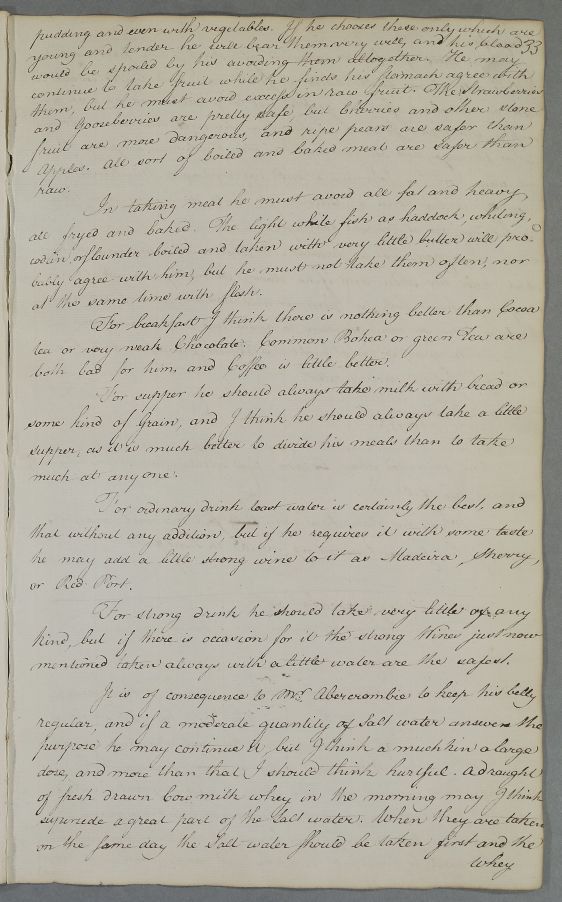 pudding and even with vegetables. If he chooses these only which are
33
young and tender he will bear them very well, and his blood
would be spoiled by his avoiding them altogether. He may
continue to take fruit while he finds his stomach agree with
them, but he must avoid excess in raw fruit. The Strawberries
and Gooseberries are pretty safe but Cherries and other stone
fruit are more dangerous, and ripe pears are safer than
Apples. All sort of boiled and baked meat are safer than
raw.
In taking meat he must avoid all fat and heavy,
all fryed and baked. The light white fish as haddock, whiting,
or flounder boiled and taken with very little butter will pro-
bably agree with him, but he must not take them often, nor
at the same time with flesh.
For breakfast I think there is nothing better than Cocoa
tea or very weak Chocolate. Common Bohea or green Tea are
both bad for him, and Coffee is little better.
For supper he should always take milk with bread or
some kind of Grain, and I think he should always take a little
supper, as it is much better to divide his meals than to take
much at any one.
For ordinary drink toast water is certainly the best, and
that without any addition, but if he requires it with some taste
he may add a little strong wine to it as Madeira, Sherry,
or Red Port.
For strong drink he should take very little of any
kind, but if there is occasion for it the strong Wines just now
mentioned taken always with a little water are the safest.
It is of consequence to Mr. Abercrombie to keep his belly
regular, and if a moderate quantity of Salt water answers the
purpose he may continue it, but I think a mutchkin a large
dose, and more than that I should think hurtful. A draught
of fresh drawn Cow milk whey in the morning may I think
supercede a great part of the Salt water. When they are taken
on the same day the Salt water should be taken first and the
whey